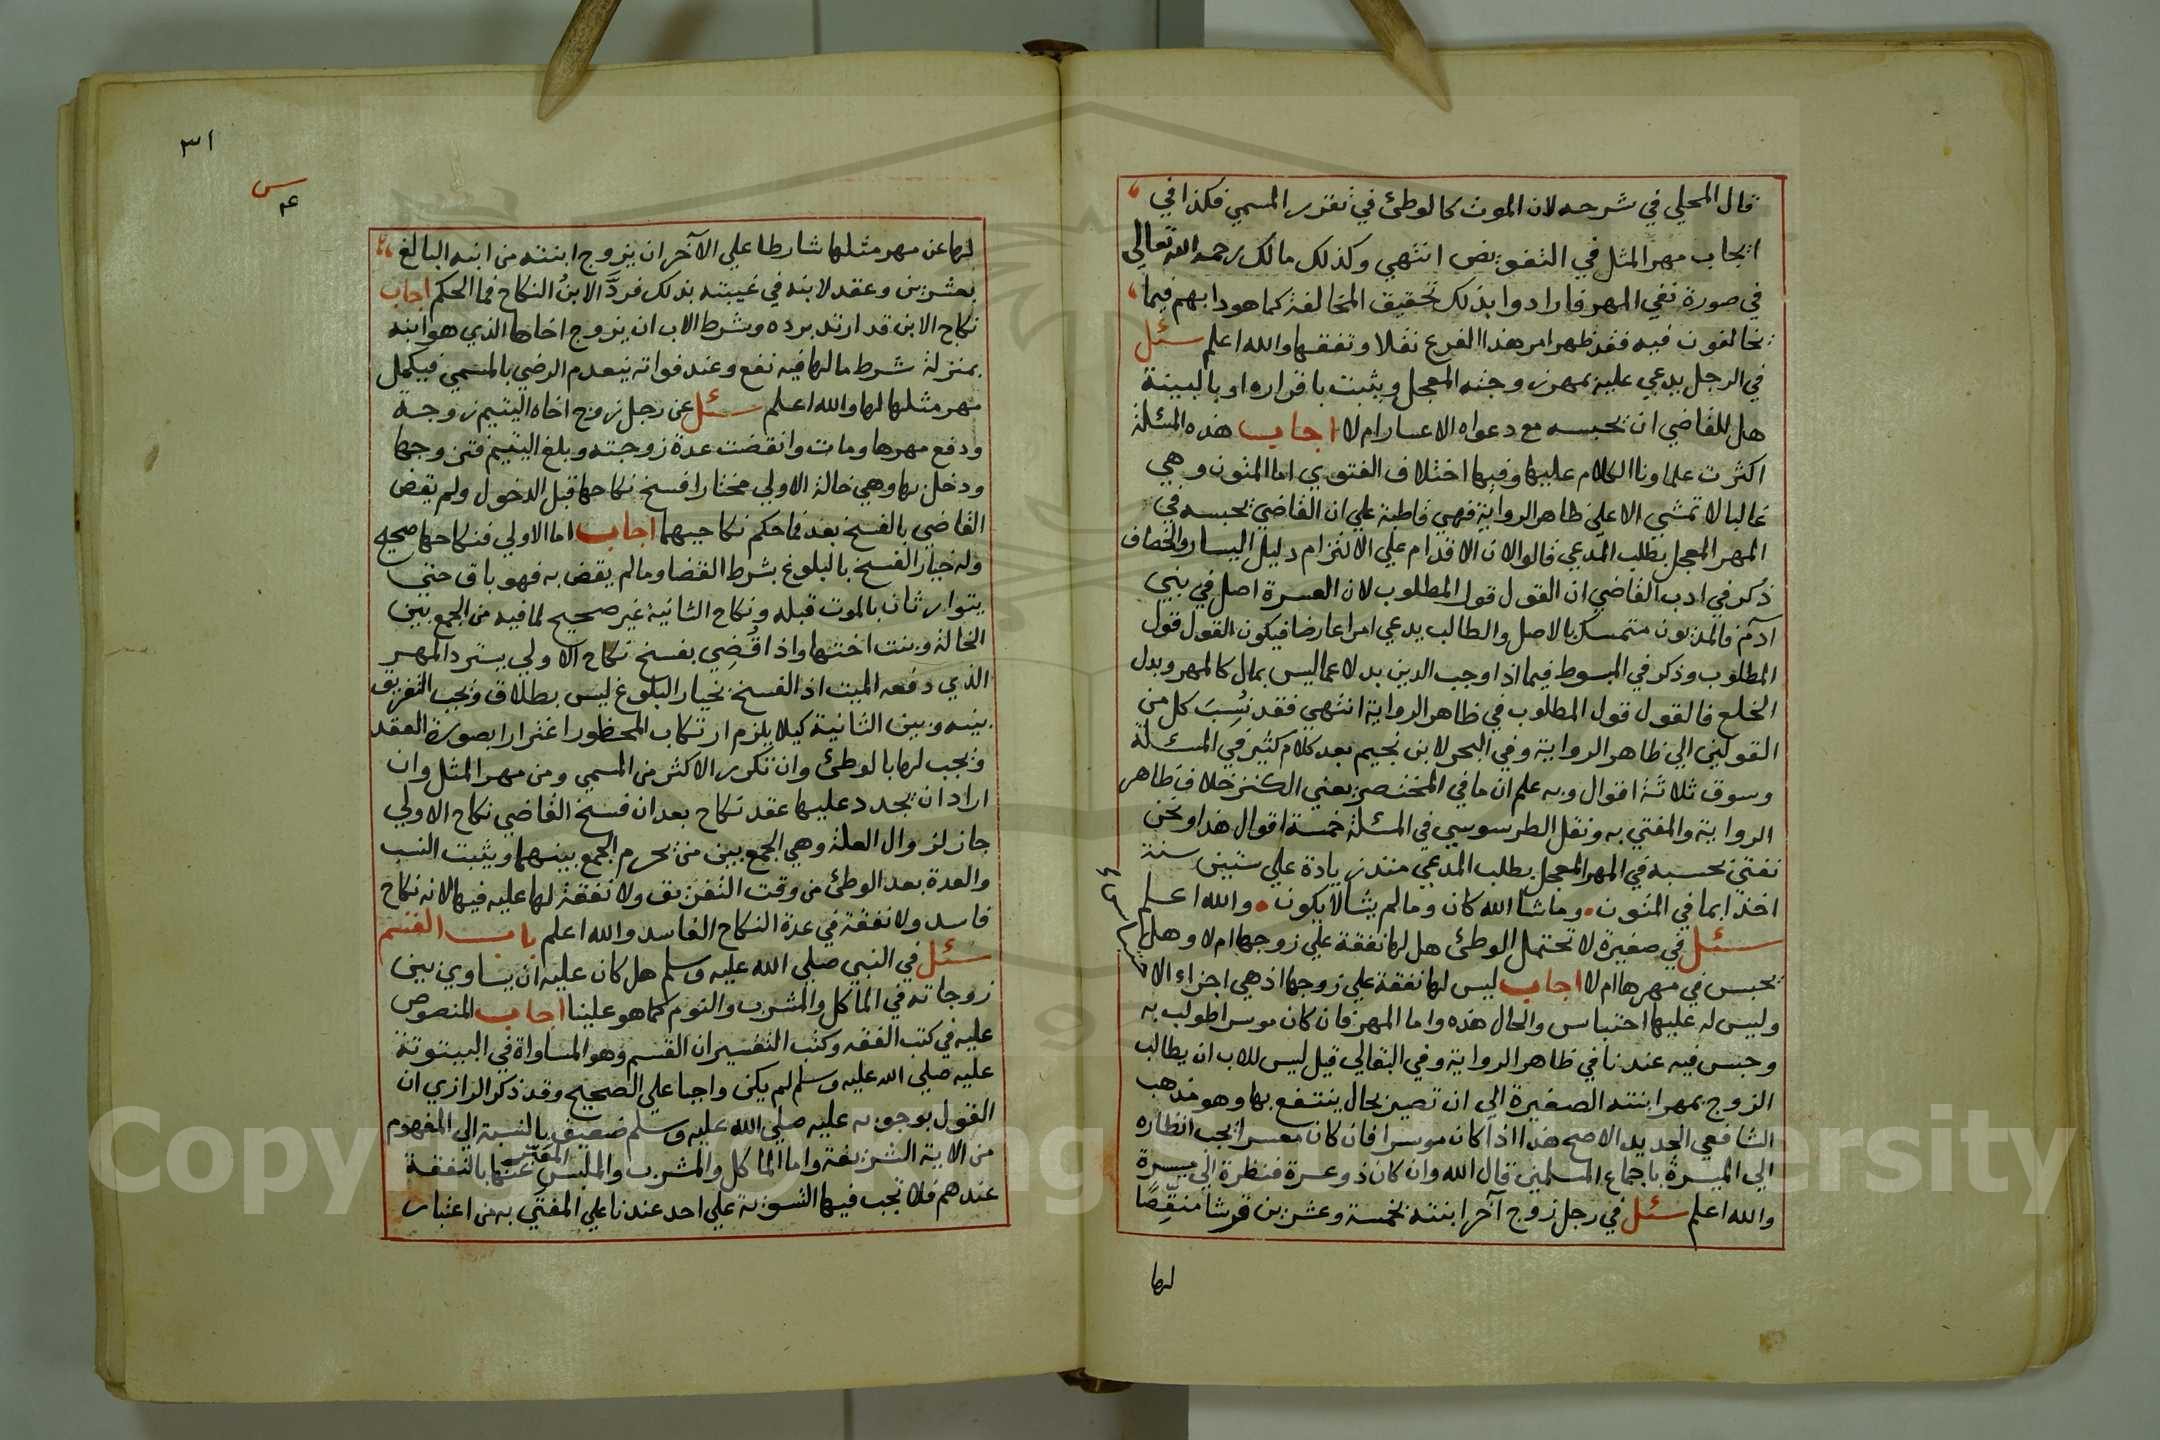 قال المحلي في شرحه لان الموت كالوطئ في تقرر المسمي فكذا في
ايجاب مهر المثل في التفويض انتهي وكذلك مالك رحمه الله تعالي
في صورة نفي المهر فارادوا بذلك تحقيق المخالفة كما هو دابهم فيما
يخالفون فيه فقد ظهر امر هذا الفرع نقلا وتفقها والله اعلم سئل
في الرجل يدعي عليه بمهر زوجته المعجل ويثبت باقراره او بالبينة
هل للقاضي ان يحبسه مع دعواه الاعسار ام لا اجاب هذه المسئلة
اكثرت علماونا الكلام عليها وفيها اختلاف الفتوي اما المتون وهي
غالبا لا تمشي الا علي ظاهر الرواية فهي قاطبة علي ان القاضي يحبسه في
المهر المعجل بطلب المدعي قالوا لان الاقدام علي الالتزام دليل اليسار والخصاف
ذكر في ادب القاضي ان القول قول المطلوب لان العسرة اصل في بني
آدم فالمديون متمسك بالاصل والطالب يدعي امرا عارضا فيكون القول قول
المطلوب وذكر في المبسوط فيما اذا وجب الدين بدلا عما ليس بمال كالمهر وبدل
الخلع فالقول قول المطلوب في ظاهر الرواية انتهي فقد نُسِبَ كل من
القولين الي ظاهر الرواية وفي البحر لابن نجيم بعد كلام كثير في المسئلة
وسوق ثلاثة اقوال وبه علم ان ما في المختصر يعني الكنز خلاف ظاهر
الرواية والمفتي به ونقل الطرسوسي في المسئلة خمسة اقوال هذا ونحن
نفتي بحبسه في المهر المعجل بطلب المدعي منذ زيادة علي ستين سنة
اخذا بما في المتون وما شا الله كان وما لم يشا لا يكون والله اعلم
سئل في صغيرة لا تحتمل الوطئ هل لها نفقة علي زوجها ام لا وهل
يحبس في مهرها ام لا اجاب ليس لها نفقة علي زوجها اذ هي اجزاء الا
وليس له عليها احتباس والحال هذه واما المهر فان كان موسرا طولب به
وحبس فيه عندنا في ظاهر الرواية وفي البقالي قيل ليس للاب ان يطالب
الزوج بمهر ابنته الصغيرة الي ان تصير بحال ينتفع بها وهو مذهب
الشافعي الجديد الاصح هذا اذا كان موسرا فان كان معسرا يجب انظاره
الي الميسرة باجماع المسلمين قال الله وان كان ذو عسرة فنظرة الي ميسرة
والله اعلم سئل في رجل زوج آخر ابنته بخمسة وعشرين قرشا منقِّصًا
لها
٣١
لها عن مهر مثلها شارطا علي الآخر ان يزوج ابنته من ابنه البالغ
بعشرين وعقد لابنه في غيبته بذلك فردَّ الابنُ النكاح فما الحكم اجاب
نكاح الابن قد ارتد برده وشرط الاب ان يزوج اخاها الذي هو ابنه
بمنزلة شرط ما لها فيه نفع وعند فواته ينعدم الرضي بالمسمي فيكمل
مهر مثلها لها والله اعلم سئل عن رجل زوج اخاه اليتيم زوجة
ودفع مهرها ومات وانقضت عدة زوجته وبلغ اليتيم فتزوجها
ودخل بها وهي خالة الاولي مختارا فسخ نكاحها قبل الدخول ولم يقض
القاضي بالفسخ بعد فما حكم نكاحيهما اجاب اما الاولي فنكاحها صحيح
وله خيار الفسخ بالبلوغ بشرط القضا وما لم يقض به فهو باق حتي
يتوارثان بالموت قبله ونكاح الثانية غير صحيح لما فيه من الجمع بين
الخالة وبنت اختها واذا قُضِي بفسخ نكاح الاولي يسترد المهر
الذي دفعه الميت اذ الفسخ بخيار البلوغ ليس بطلاق ويجب التفريق
بينه وبين الثانية كيلا يلزم ارتكاب المحظور اغترارا بصورة العقد
ويجب لها بالوطئ وان تكرر الاكثر من المسمي ومن مهر المثل وان
اراد ان يجدد عليها عقد نكاح بعد ان فسخ القاضي نكاح الاولي
جاز لزوال العلة وهي الجمع بين من يحرم الجمع بينهما ويثبت النسب
والعدة بعد الوطئ من وقت التفريق ولا نفقة لها عليه فيها لانه نكاح
فاسد ولا نفقة في عدة النكاح الفاسد والله اعلم باب القسم
سئل في النبي صلي الله عليه وسلم هل كان عليه ان يساوي بين
زوجاته في الماكل والمشرب والنوم كما هو علينا اجاب المنصوص
عليه في كتب الفقه وكتب التفسير ان القسم وهو المساواة في البيتوتة
عليه صلي الله عليه وسلم لم يكن واجبا علي الصحيح وقد ذكر الرازي ان
القول بوجوبه عليه صلي الله عليه وسلم ضعيف بالنسبة الي المفهوم
من الاية الشريفة واما الماكل والمشرب والملبس المعبر عنها بالنفقة
عندهم فلا تجب فيها التسوية علي احد عندنا علي المفتي به من اعتبار